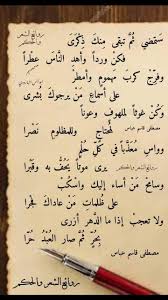 روائع الشعر
والحكم
ستمضي ثم تبقى منك ذكرى
فكن ورداً وأهدِ الناسَ عطرا
وفرّج كرب مهموم وأمطر
على أسماع من يرجوك بشرى
وكن غوثاً لملهوف وعوناً
لمحتاج وللمظلوم نصرا
وواسِ معذباً في كل
يرى موتاً يحف به
وسامح من أساء إليك واسكب
على ظلمات من عاداك فجرا
ولا تعجب إذا ما الدهر أزرى
بحرّ ثم صار العبد حرا
مصطفى قاسم عباس
روائع الشعر والحكم